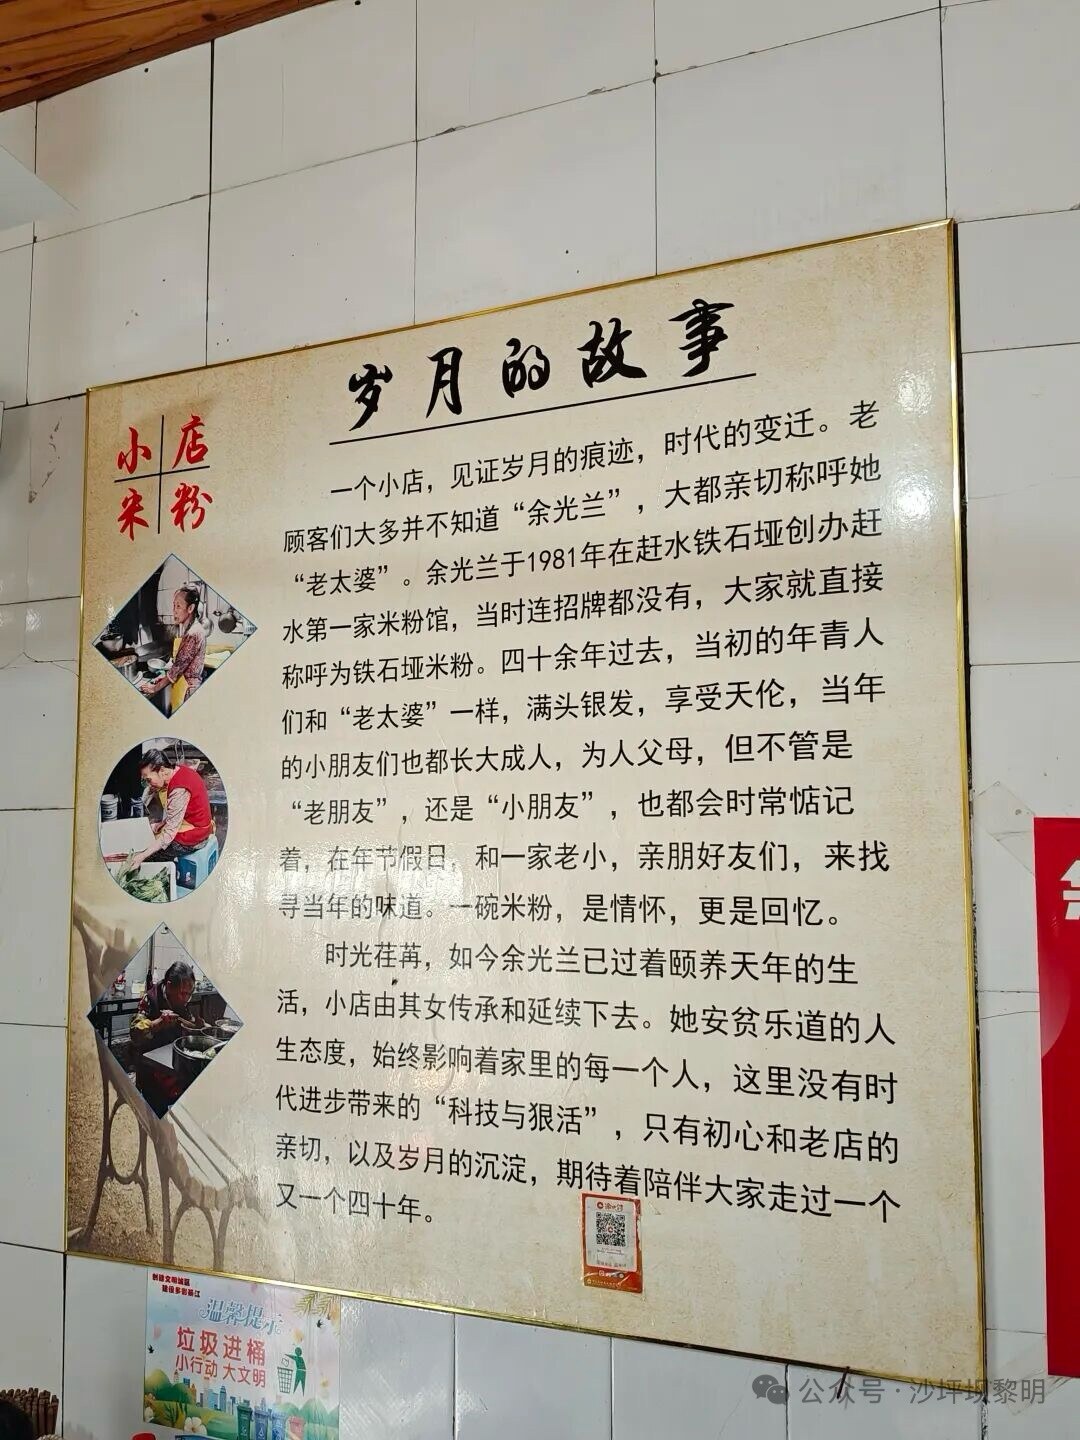 岁月的故事
小店
米粉
一个小店，见证岁月的痕迹，时代的变迁。老
顾客们大多并不知道“余光兰”，大都亲切称呼她
“老太婆”。余光兰于1981年在赶水铁石垭创办赶
水第一家米粉馆，当时连招牌都没有，大家就直接
称呼为铁石垭米粉。四十余年过去，当初的年青人
们和“老太婆”一样，满头银发，享受天伦，当年
的小朋友们也都长大成人，为人父母，但不管是
“老朋友”，还是“小朋友”，也都会时常惦记
着，在年节假日，和一家老小，亲朋好友们，来找
寻当年的味道。一碗米粉，是情怀，更是回忆。
时光荏苒，如今余光兰已过着颐养天年的生
活，小店由其女传承和延续下去。她安贫乐道的人
生态度，始终影响着家里的每一个人，这里没有时
代进步带来的“科技与狠活”，只有初心和老店的
亲切，以及岁月的沉淀，期待着陪伴大家走过一个
又一个四十年。
创建文明城区
建设多彩綦江
温馨提示
垃圾进桶
小行动 大文明
公众号·沙坪坝黎明